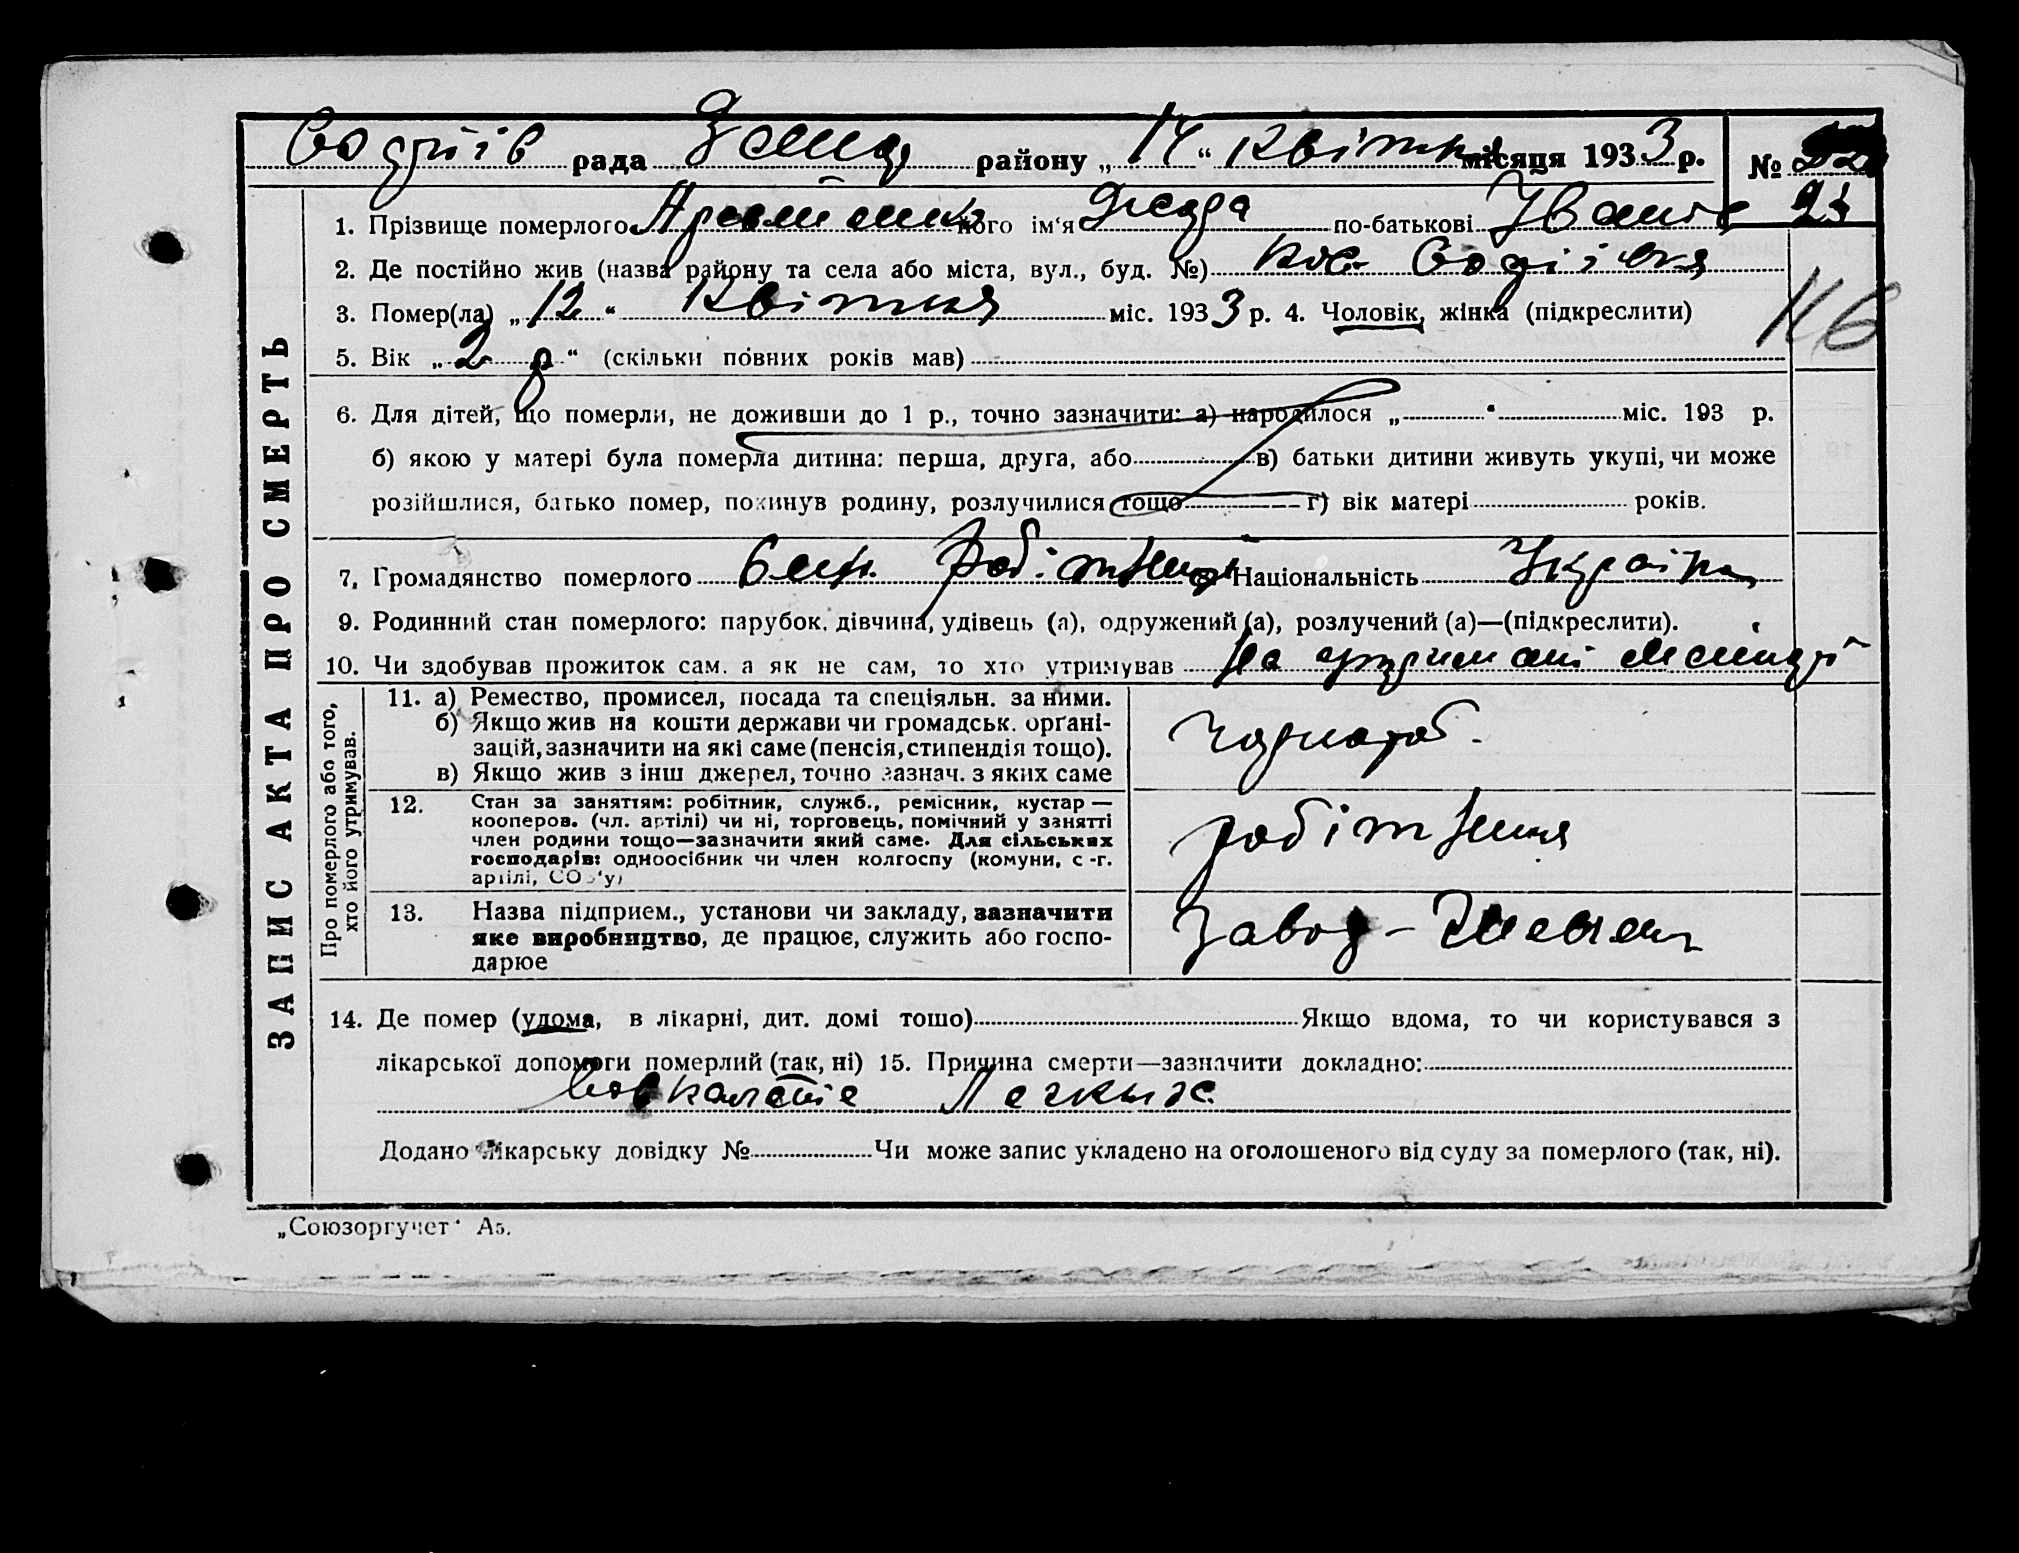 рада району „ 14 “ квітня місяця 1933 р. №
1. Прізвище померлого його ім‘я по-батькові
2. Де постійно жив (назва району та села або міста, вул., буд. №)
3. Помер(ла) „ 12 “ квітня міс. 1933 р. 4. Чоловік, жінка (підкреслити)
116
5. Вік „ 2 р “ (скільки повних років мав)
6. Для дітей, що померли, не доживши до 1 р., точно зазначити: а) народилося „ “ міс. 193 р.
б) якою у матері була померла дитина: перша, друга, або в) батьки дитини живуть укупі, чи може
розійшлися, батько помер, покинув родину, розлучилися тощо г) вік матері років.
7. Громадянство померлого Національність Україн
9. Родинний стан померлого: парубок, дівчина, удівець (а), одружений (а), розлучений (а)—(підкреслити).
10. Чи здобував прожиток сам, а як не сам, то хто утримував На
ЗАПИС АКТА ПРО СМЕРТЬ
Про померлого або того,
хто його утримував.
11. а) Ремество, промисел, посада та спеціяльн. за ними.
б) Якщо жив на кошти держави чи громадськ. орґані-
зацій, зазначити на які саме (пенсія, стипендія тощо).
в) Якщо жив з інш джерел, точно зазнач. з яких саме
чорнороб.
12. Стан за заняттям: робітник, служб., ремісник, кустар —
кооперов. (чл. артілі) чи ні, торговець, помічний у занятті
член родини тощо—зазначити який саме. Для сільських
господарів: одноосібник чи член колгоспу (комуни, с.-г.
артілі, СОЗ‘у)
13. Назва підприєм., установи чи закладу, зазначити
яке виробництво, де працює, служить або госпо-
дарюе
завод -
14. Де помер (удома, в лікарні, дит. домі тощо) Якщо вдома, то чи користувався з
лікарської допомоги померлий (так, ні) 15. Причина смерти—зазначити докладно:
Легких
Додано лікарську довідку № Чи може запис укладено на оголошеного від суду за померлого (так, ні).
„Союзоргучет“ А5.